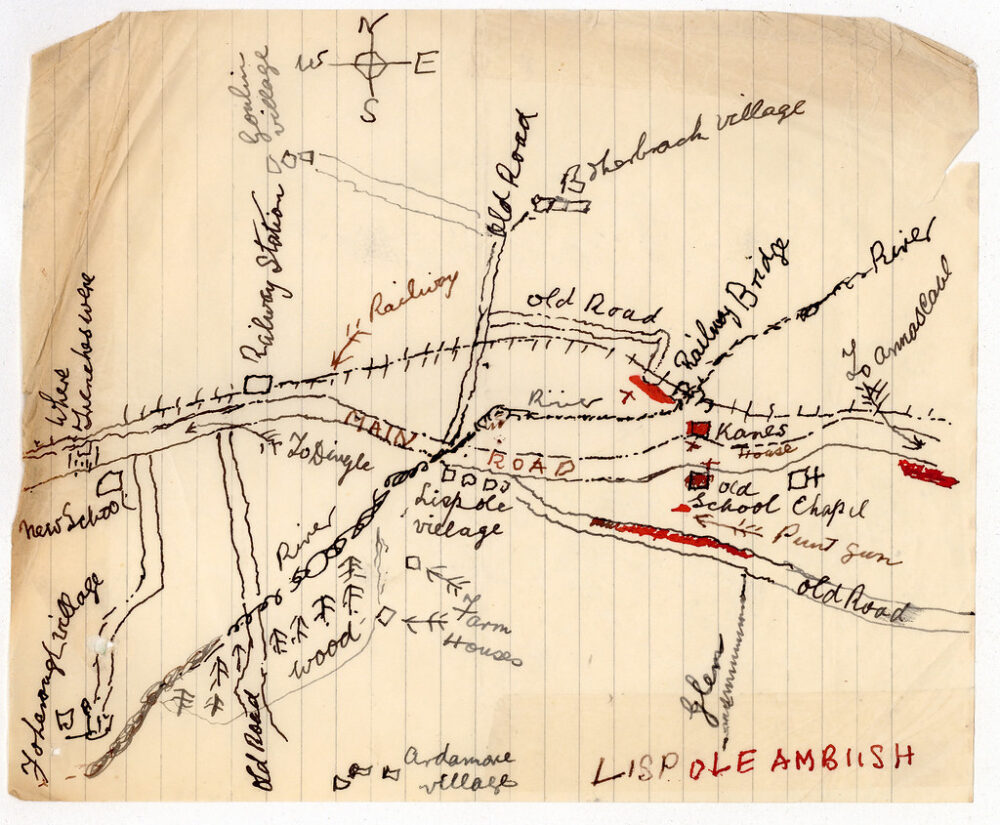 N
W
E
S
Goulin
village
Old Road
Boherbrack village
Railway Station
Railway
old Road
Railway Bridge
River
To
Annascaul
Where
Trenches were
River
MAIN
ROAD
To Dingle
Kanes
House
Old
School
Chapel
New School
Lispole
village
Punt Gun
River
old Road
Farm
Houses
Wood
Old Road
Glen
Ardamore
village
LISPOLE AMBUSH